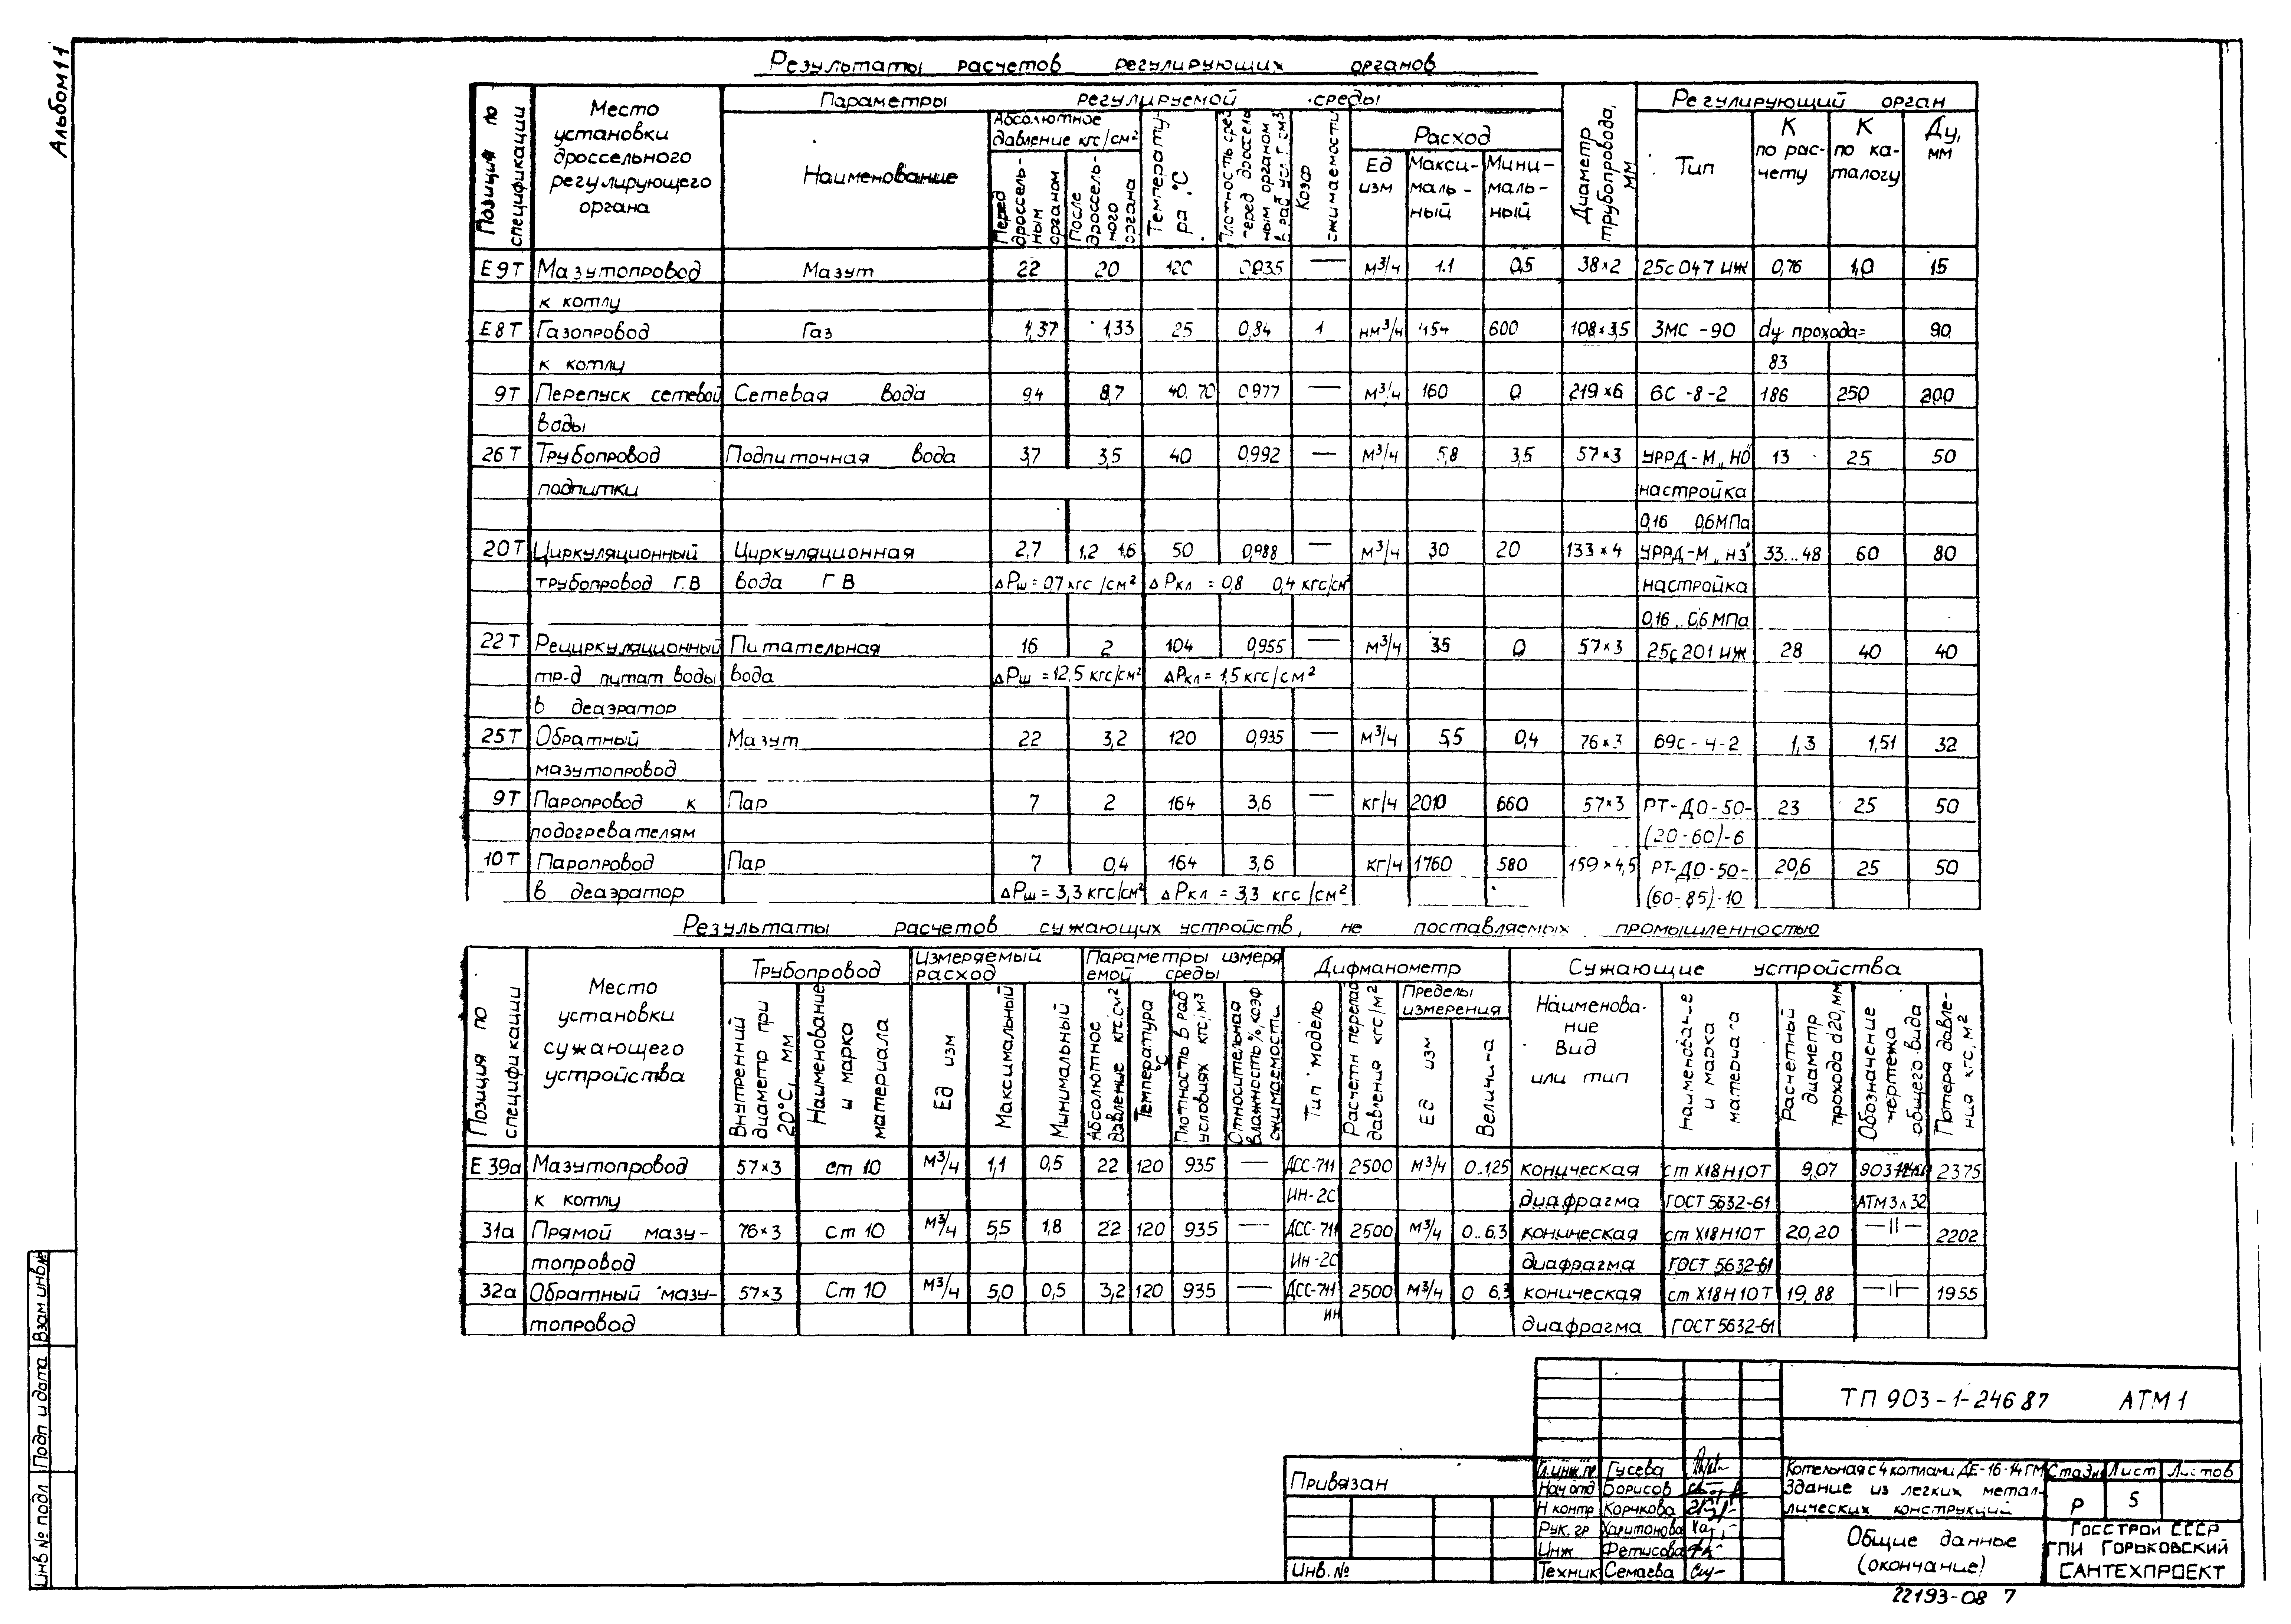 Альбом 11
Результаты расчетов регулирующих органов
Позиция по спецификации
Место установки дроссельного регулирующего органа
Параметры регулируемой среды
Наименование
Абсолютное давление кгс/см²
Перед дроссельным органом
После дроссельного органа
Температура °С
Плотность сред перед дроссельным органом в раб усл г/см³
Коэф сжимаемости
Расход
Ед изм
Максимальный
Минимальный
Диаметр трубопровода, мм
Регулирующий орган
Тип
К по расчету
К по каталогу
Ду, мм
Е9Т Мазутопровод Мазут 22 20 120 0,935 — м³/ч 1.1 0,5 38×2 25с047нж 0,76 1,0 15
к котлу
Е8Т Газопровод Газ 1,37 1,33 25 0,84 1 нм³/ч 1154 600 108×3,5 ЗМС-90 dу прохода= 90
к котлу 83
9Т Перепуск сетевой Сетевая вода 9.4 8,7 40. 70 0,977 — м³/ч 160 0 219×6 6С-8-2 186 250 200
воды
26Т Трубопровод Подпиточная вода 3,7 3,5 40 0,992 — м³/ч 5,8 3,5 57×3 УРРД-М „НО" 13 25 50
подпитки настройка
0,16 0,6МПа
20Т Циркуляционный Циркуляционная 2,7 1.2 1,6 50 0,988 — м³/ч 30 20 133×4 УРРД-М „НЗ" 33...48 60 80
трубопровод Г.В вода Г В ΔРш=0,7кгс/см² ΔРкл=0,8 0,4 кгс/см² настройка
0,16..0,6 МПа
22Т Рециркуляционный Питательная 16 2 104 0,955 — м³/ч 35 0 57×3 25с201нж 28 40 40
тр-д питат воды вода ΔРш=12,5 кгс/см² ΔРкл=1,5 кгс/см²
в деаэратор
25Т Обратный Мазут 22 3,2 120 0,935 — м³/ч 5,5 0,4 76×3 69с-4-2 1,3 1,51 32
мазутопровод
9Т Паропровод к Пар 7 2 164 3,6 — кг/ч 2010 660 57×3 РТ-ДО-50- 23 25 50
подогревателям (20-60)-6
10Т Паропровод Пар 7 0,4 164 3,6 кг/ч 1760 580 159×4,5 РТ-ДО-50- 20,6 25 50
в деаэратор ΔРш=3,3 кгс/см² ΔРкл=3,3 кгс/см² (60-85)-10
Результаты расчетов сужающих устройств, не поставляемых промышленностью
Позиция по спецификации
Место установки сужающего устройства
Трубопровод
Внутренний диаметр при 20°С, мм
Наименование и марка материала
Измеряемый расход
Ед изм
Максимальный
Минимальный
Параметры измеряемой среды
Абсолютное давление кгс/см²
Температура °С
Плотность в раб условиях кгс/м³
Относительная влажность %, коэф сжимаемости
Дифманометр
Тип модель
Расчетн перепад давления кгс/м²
Пределы измерения
Ед изм
Величина
Сужающие устройства
Наименование Вид или тип
Наименование и марка материала
Расчетный диаметр прохода d20, мм
Обозначение чертежа общего вида
Потеря давления кгс/м²
Е39а Мазутопровод 57×3 ст 10 м³/ч 1,1 0,5 22 120 935 — ДСС-711 2500 м³/ч 0..1,25 коническая ст Х18Н10Т 9,07 903 2375
к котлу ИН-2С диафрагма ГОСТ 5632-61 АТМ3л32
31а Прямой мазу- 76×3 Ст 10 м³/ч 5,5 1,8 22 120 935 — ДСС-711 2500 м³/ч 0..6.3 коническая ст Х18Н10Т 20,20 —||— 2202
топровод Ин-2С диафрагма ГОСТ 5632-61
32а Обратный мазу- 57×3 Ст 10 м³/ч 5,0 0,5 3,2 120 935 — ДСС-711 2500 м³/ч 0 6,3 коническая ст Х18Н10Т 19,88 —||— 1955
топровод ИН диафрагма ГОСТ 5632-61
ТП 903-1-246 87 АТМ1
Привязан
Инв.№
Гл.инж.пр Гусева
Нач отд Борисов
Н контр Корчкова
Рук. гр Харитонова
Инж Фетисова
Техник Семаева
Котельная с 4 котлами ДЕ-16-14ГМ
Здание из легких метал-
лических конструкций
Стадия Лист Листов
Р 5
Общие данные
(окончание)
Госстрой СССР
ГПИ Горьковский
Сантехпроект
22193-08 7
Инв № подл Подп и дата Взам инв №